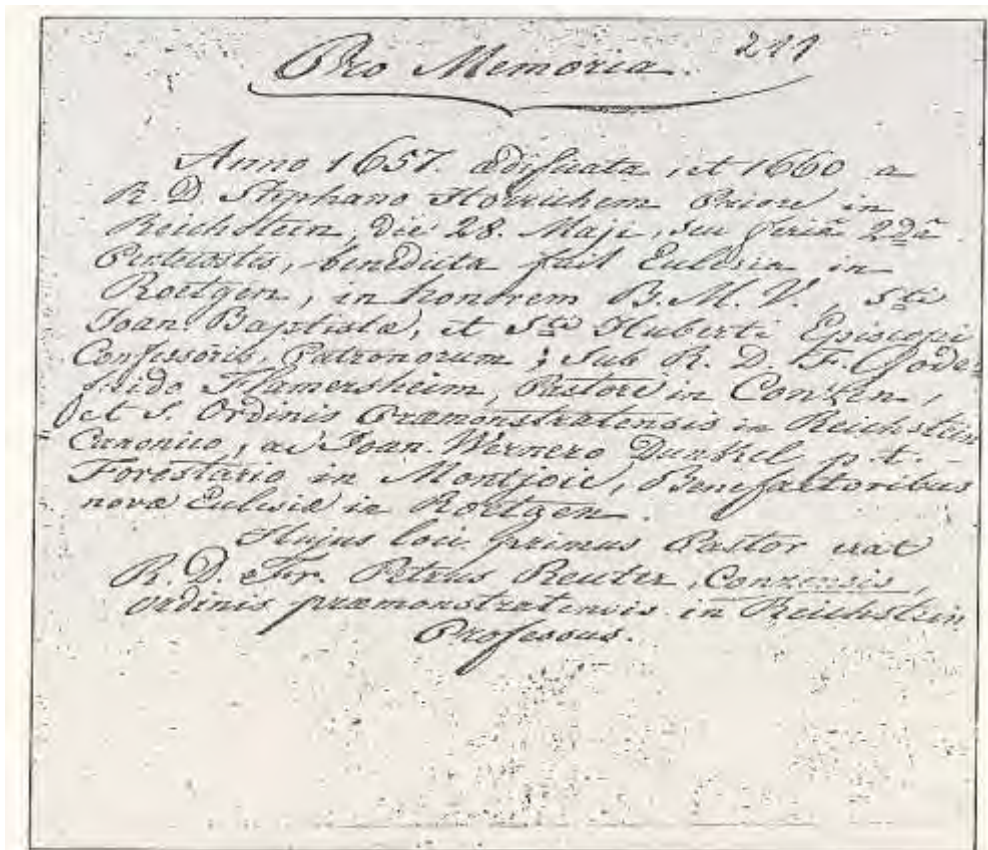 Pro Memoria. 211
Anno 1657. ædificata, et 1660 a
R. D. Stephano Horrichem Priore in
Reichstein, die 28. Maji, seu feriâ 2dâ
Pentecostes, benedicta fuit Ecclesia in
Roetgen, in honorem B. M. V., Sti
Joan. Baptistæ, et Sti Huberti Episcopi
Confessoris, Patronorum; sub R. D. F. Gode-
frido Flamersheim, Pastore in Conzen,
et S. Ordinis Præmonstratensis in Reichstein
Canonico, ac Joan. Wernero Dunkel p. t.
Forestario in Montjoie, Benefactoribus
novæ Ecclesiæ in Roetgen.
Hujus loci primus Pastor erat
R. D. Fr. Petrus Reuter, Conzensis,
ordinis præmonstratensis in Reichstein
Professus.